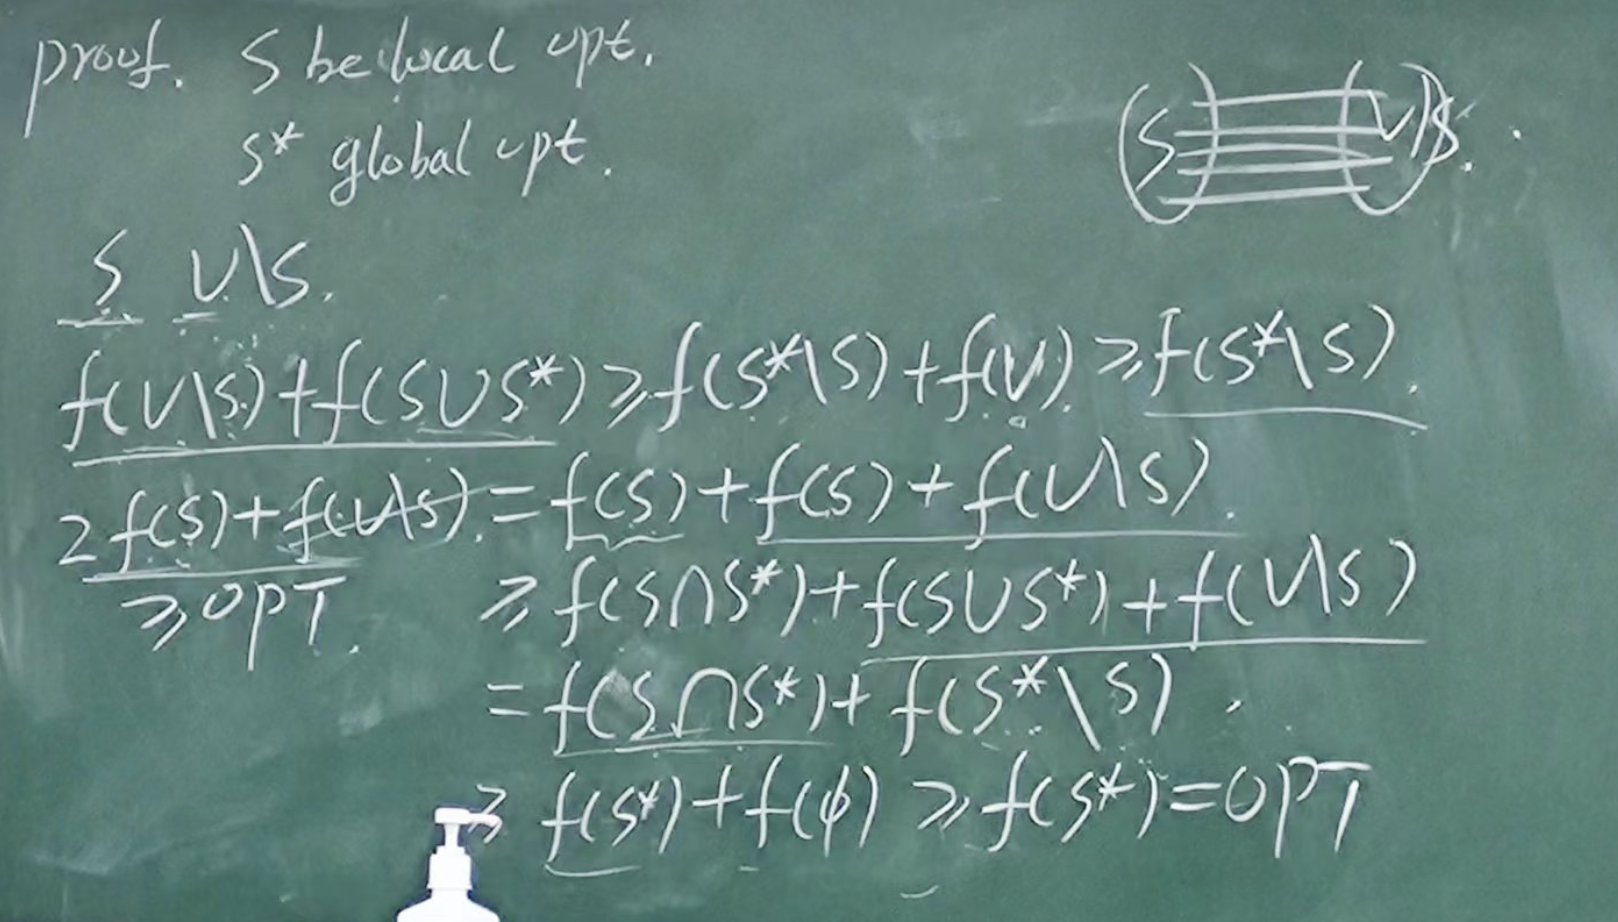 proof. S be local opt.
S* global opt.
S V\S.
S V\S.
f(V\S)+f(S∪S*)≥f(S*\S)+f(V)≥f(S*\S).
2f(S)+f(V\S).=f(S)+f(S)+f(V\S).
≥OPT.
≥f(S∩S*)+f(S∪S*)+f(V\S)
=f(S∩S*)+f(S*\S).
≥f(S*)+f(φ)≥f(S*)=OPT